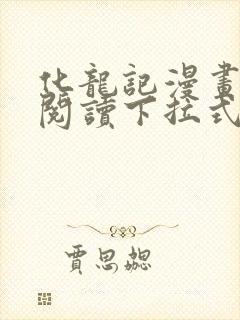 化龍記漫畫
閱讀下拉式
賈思勰